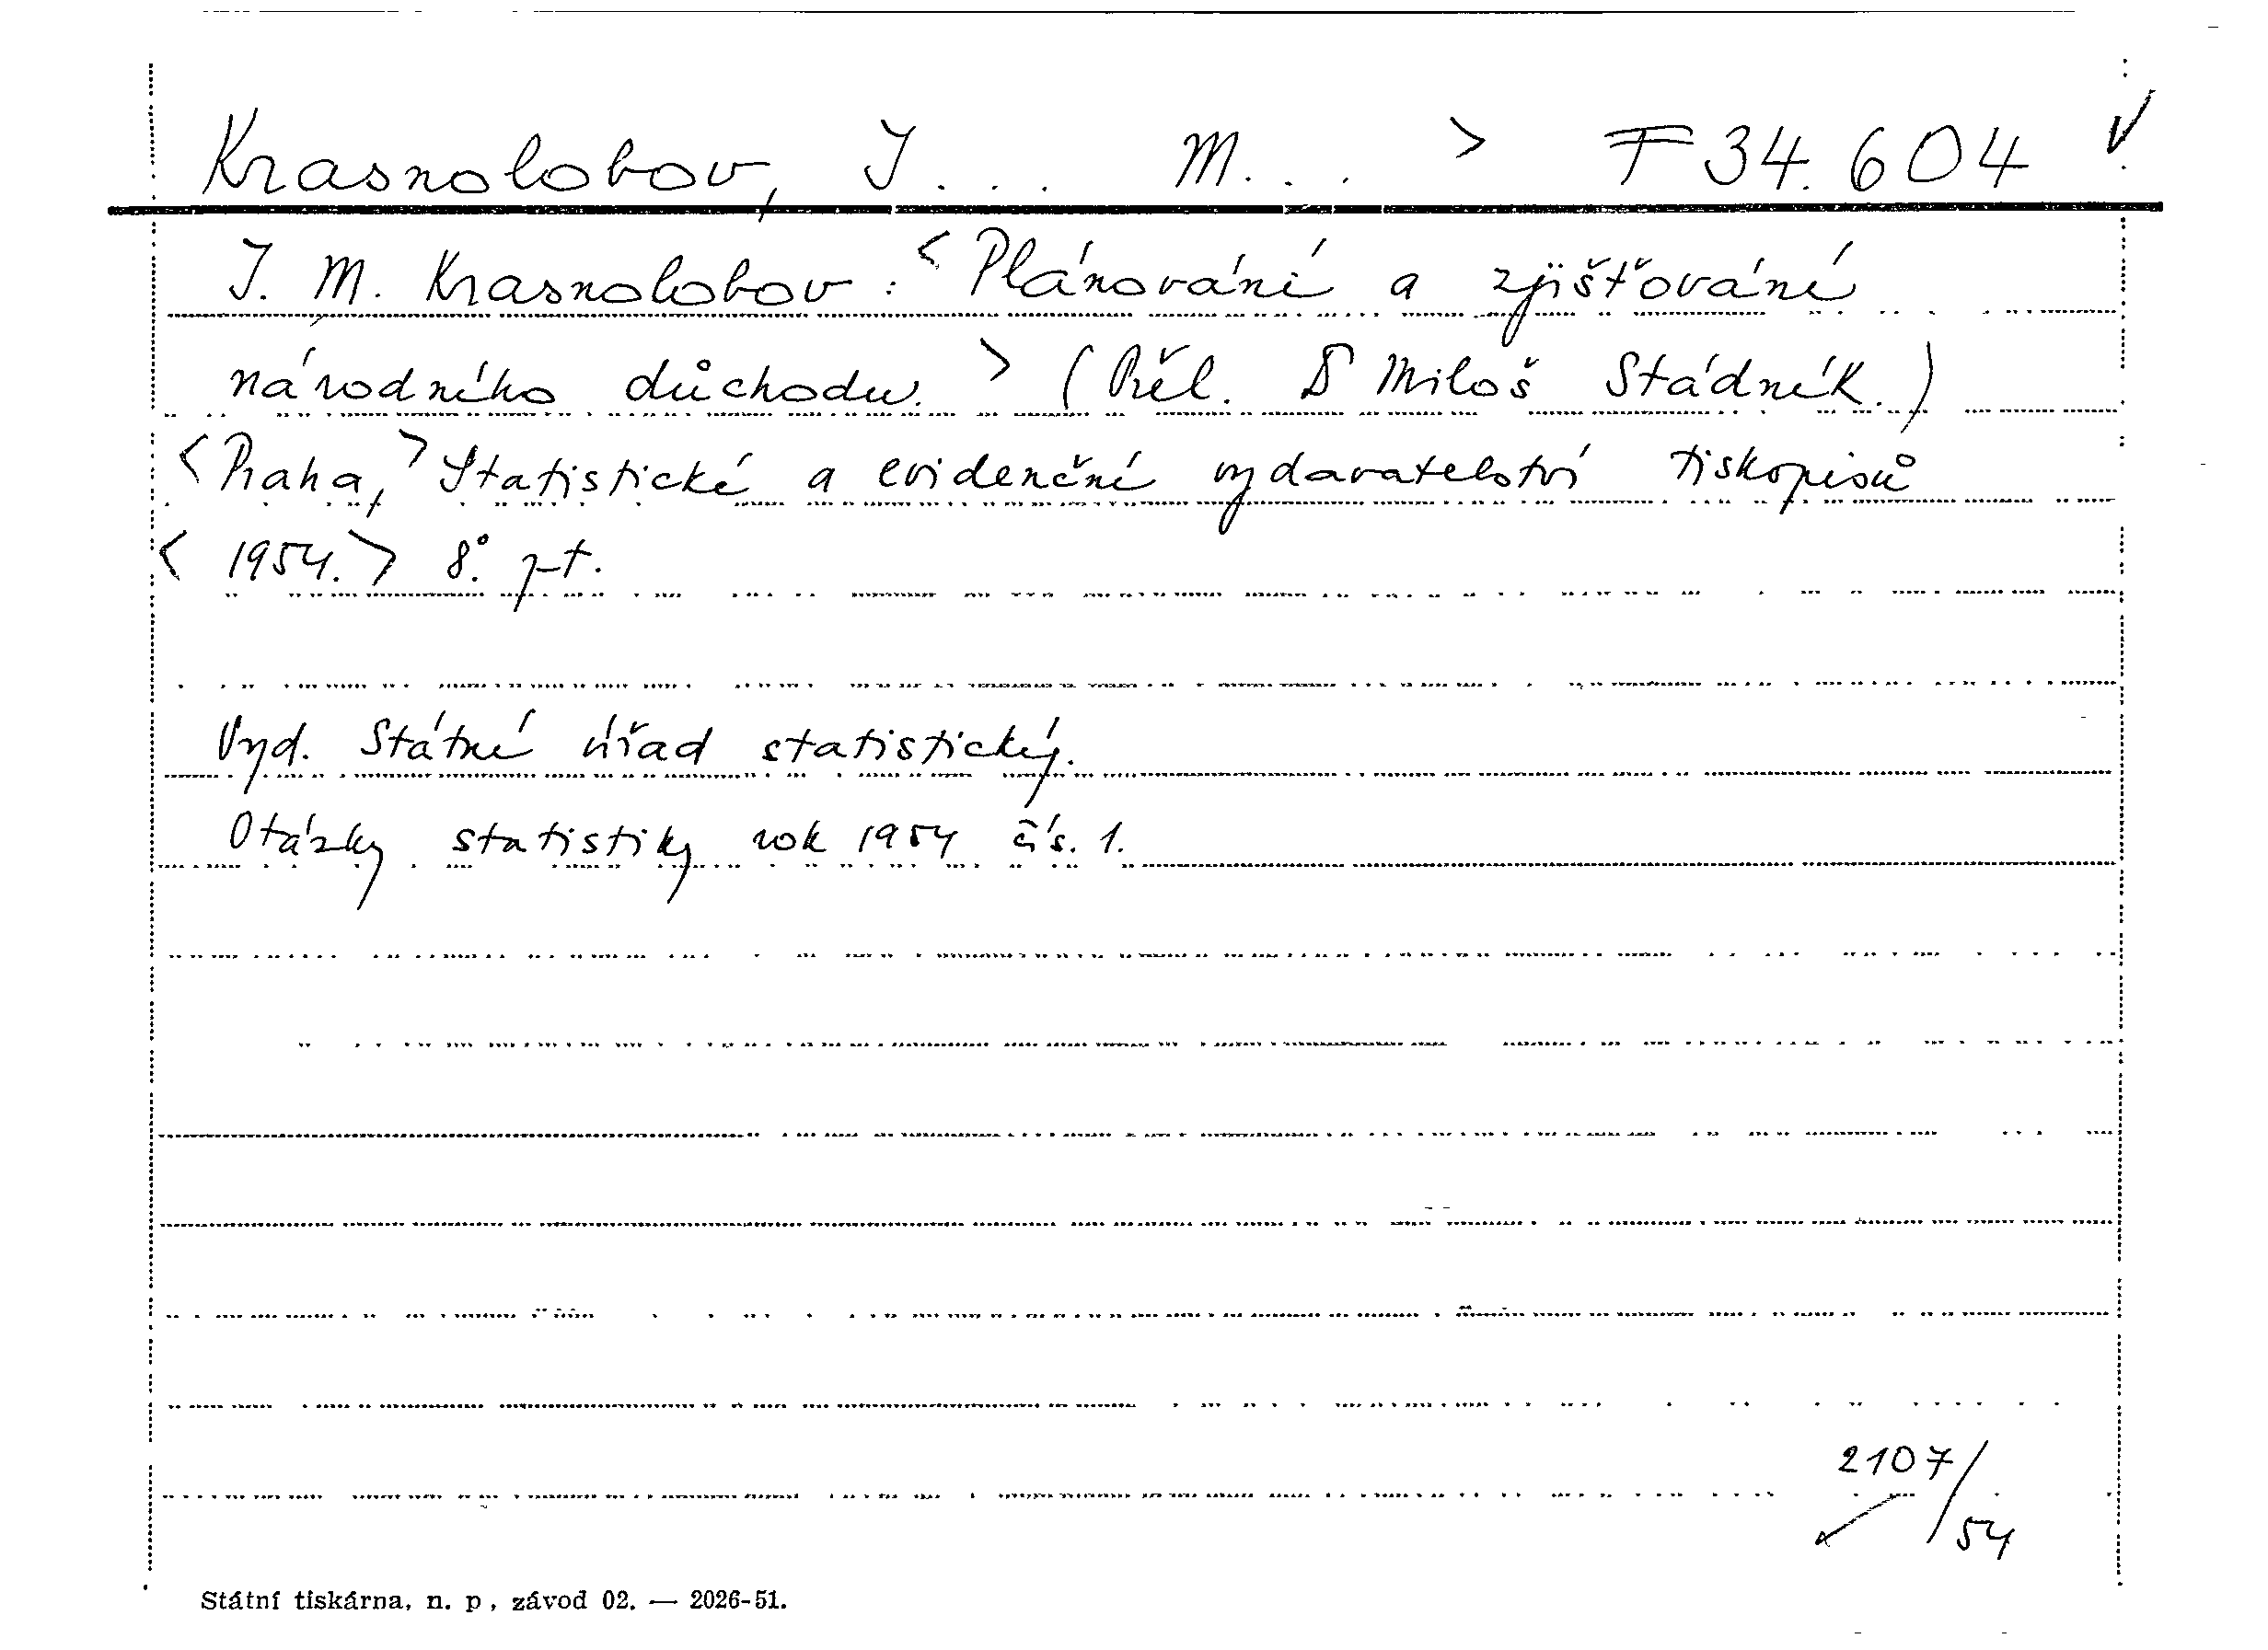 Krasnolobov, I... M... > F 34.604 √
I. M. Krasnolobov: <Plánování a zjišťování
národního důchodu.> (Přel. Dr Miloš Stádník.)
<Praha,> Statistické a evidenční vydavatelství tiskopisů
<1954.> 8°. p-t.
Vyd. Státní úřad statistický.
Otázky statistiky rok 1954 čís. 1.
2107/
54
Státní tiskárna, n. p., závod 02. — 2026-51.